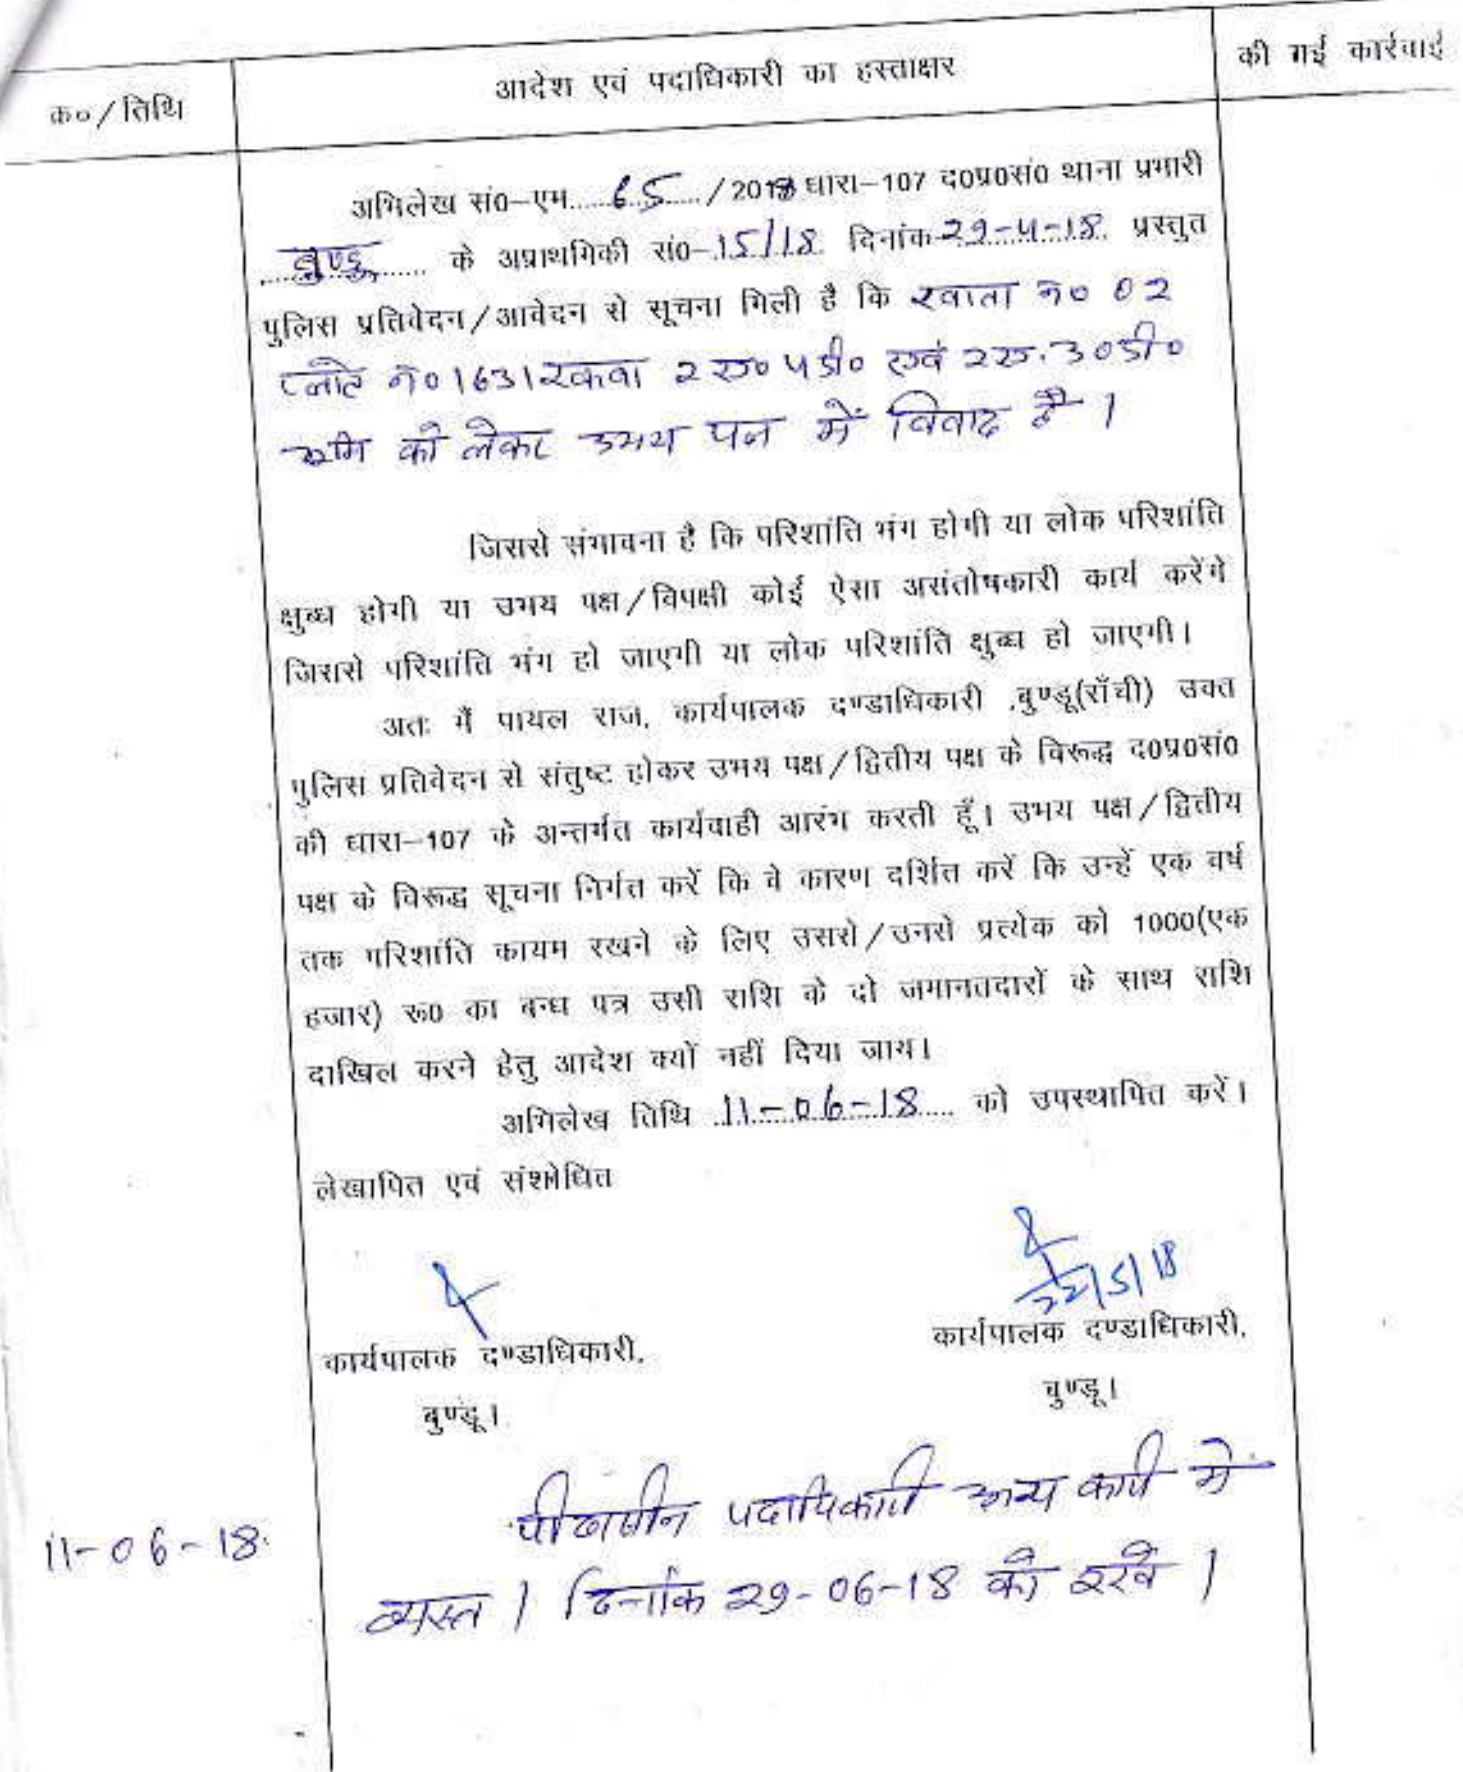 क०/तिथि
आदेश एवं पदाधिकारी का हस्ताक्षर
की गई कार्रवाई
अभिलेख सं0-एम.....65...../2018 धारा-107 द0प्र0सं0 थाना प्रभारी
बुण्डू के अप्राथमिकी सं0-15/18 दिनांक 29-4-18 प्रस्तुत
पुलिस प्रतिवेदन/आवेदन से सूचना मिली है कि खाता न० 02
प्लोट न० 1631 रकवा 2 ए० 4 डी० एवं 2 ए. 30 डी०
भूमि को लेकर उभय पक्ष में विवाद है।
जिससे संभावना है कि परिशांति भंग होगी या लोक परिशांति
क्षुब्ध होगी या उभय पक्ष/विपक्षी कोई ऐसा असंतोषकारी कार्य करेंगे
जिससे परिशांति भंग हो जाएगी या लोक परिशांति क्षुब्ध हो जाएगी।
अतः मैं पायल राज, कार्यपालक दण्डाधिकारी ,बुण्डू(राँची) उक्त
पुलिस प्रतिवेदन से संतुष्ट होकर उभय पक्ष/द्वितीय पक्ष के विरूद्ध द0प्र0सं0
की धारा-107 के अन्तर्गत कार्यवाही आरंभ करती हूँ। उभय पक्ष/द्वितीय
पक्ष के विरूद्ध सूचना निर्गत करें कि वे कारण दर्शित करें कि उन्हें एक वर्ष
तक परिशांति कायम रखने के लिए उससे/उनसे प्रत्येक को 1000(एक
हजार) रू0 का बन्ध पत्र उसी राशि के दो जमानतदारों के साथ राशि
दाखिल करने हेतु आदेश क्यों नहीं दिया जाय।
अभिलेख तिथि 11-06-18 को उपस्थापित करें।
लेखापित एवं संशोधित
22/5/18
कार्यपालक दण्डाधिकारी,
कार्यपालक दण्डाधिकारी,
बुण्डू।
बुण्डू।
पीठासीन पदाधिकारी अन्य कार्य में
11-06-18
व्यस्त। दिनांक 29-06-18 को रखें।